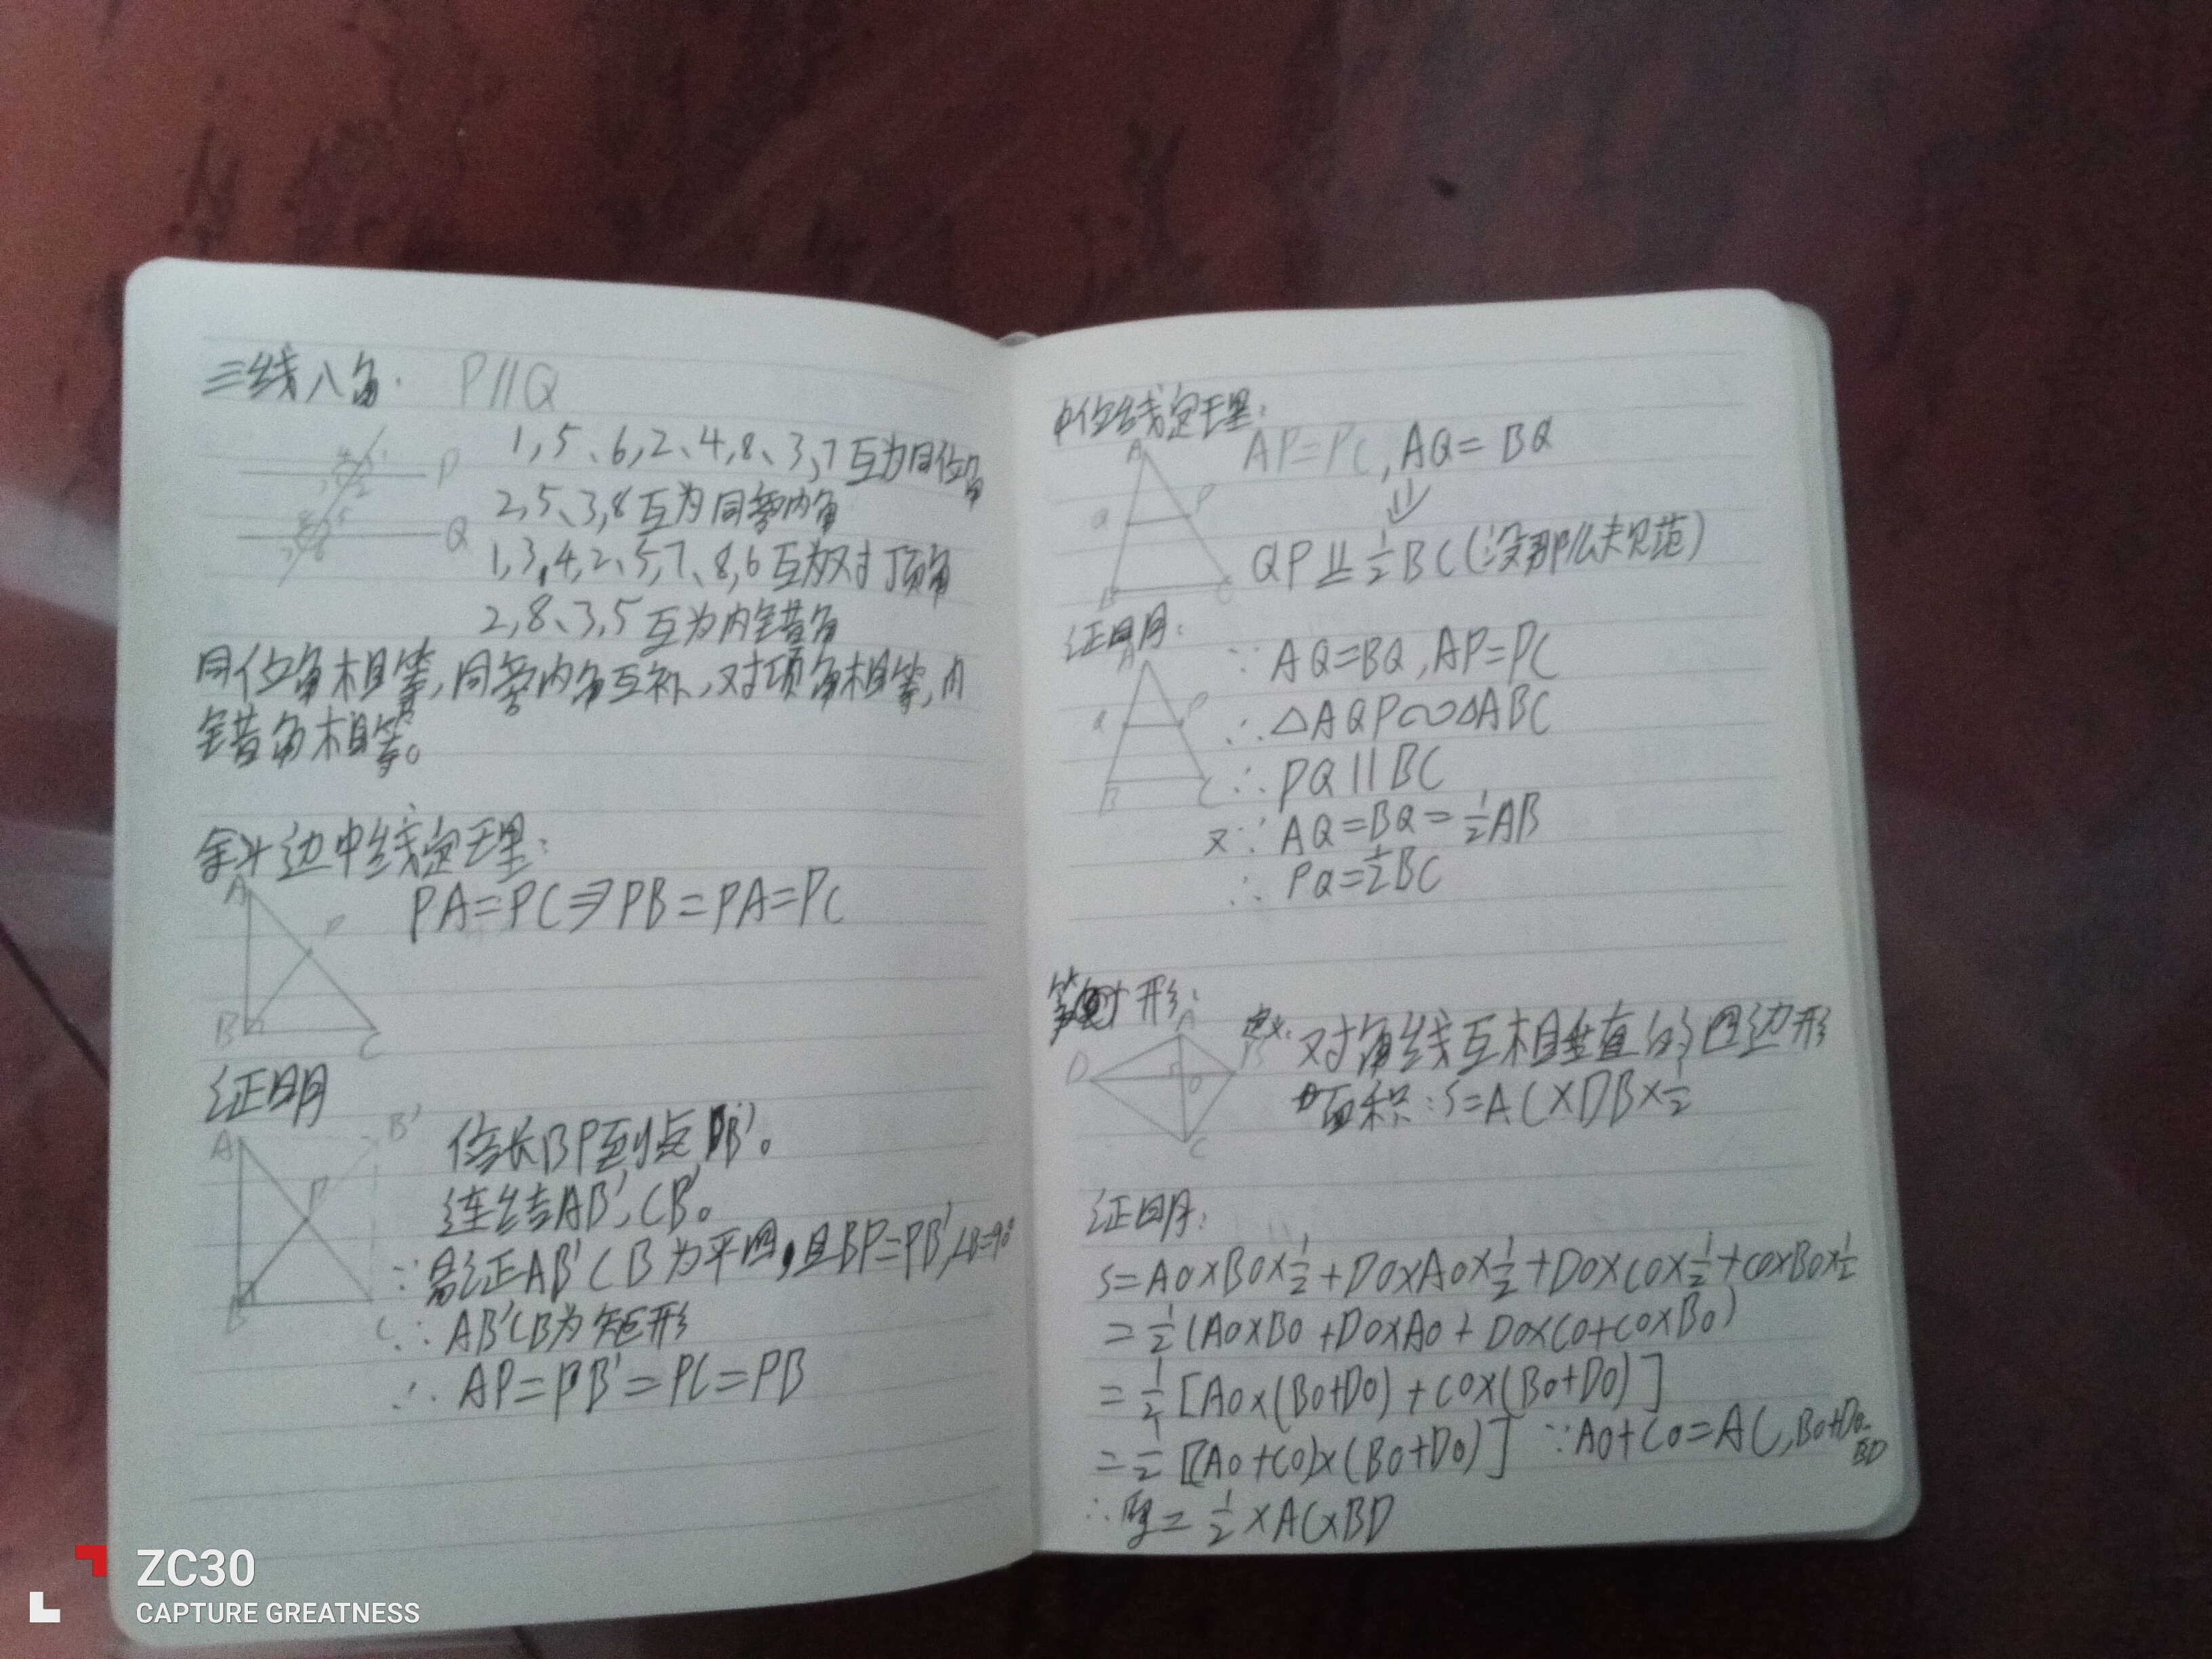 三线八角. P//Q
4 1
3 2
P
Q
5
8
1,5、6,2、4,8、3,7互为同位角
2,5、3,8互为同旁内角
1,3,4,2、5,7、8,6互为对顶角
2,8、3,5互为内错角
同位角相等,同旁内角互补,对顶角相等,内
错角相等。
斜边中线定理:
A
P
B
C
PA=PC⇒PB=PA=PC
证明
A
B'
P
B
C
倍长BP到点B'。
连结AB',CB'。
∵易证AB'CB为平四,且BP=PB',∠B=90°
∴AB'CB为矩形
∴AP=PB'=PC=PB
中位线定理:
A
Q
P
B
C
AP=PC,AQ=BQ
⇓
QP∥=1/2BC(没那么规范)
证明:
A
Q
P
B
C
∵AQ=BQ,AP=PC
∴△AQP∽△ABC
∴PQ//BC
又∵AQ=BQ=1/2AB
∴PQ=1/2BC
筝形:
A
D
B
O
C
定义:对角线互相垂直的四边形
面积:S=AC×DB×1/2
证明:
S=AO×BO×1/2+DO×AO×1/2+DO×CO×1/2+CO×BO×1/2
=1/2(AO×BO+DO×AO+DO×CO+CO×BO)
=1/2[AO×(BO+DO)+CO×(BO+DO)]
=1/2[(AO+CO)×(BO+DO)] ∵AO+CO=AC,BO+DO=BD
=1/2×AC×BD
ZC30
CAPTURE GREATNESS